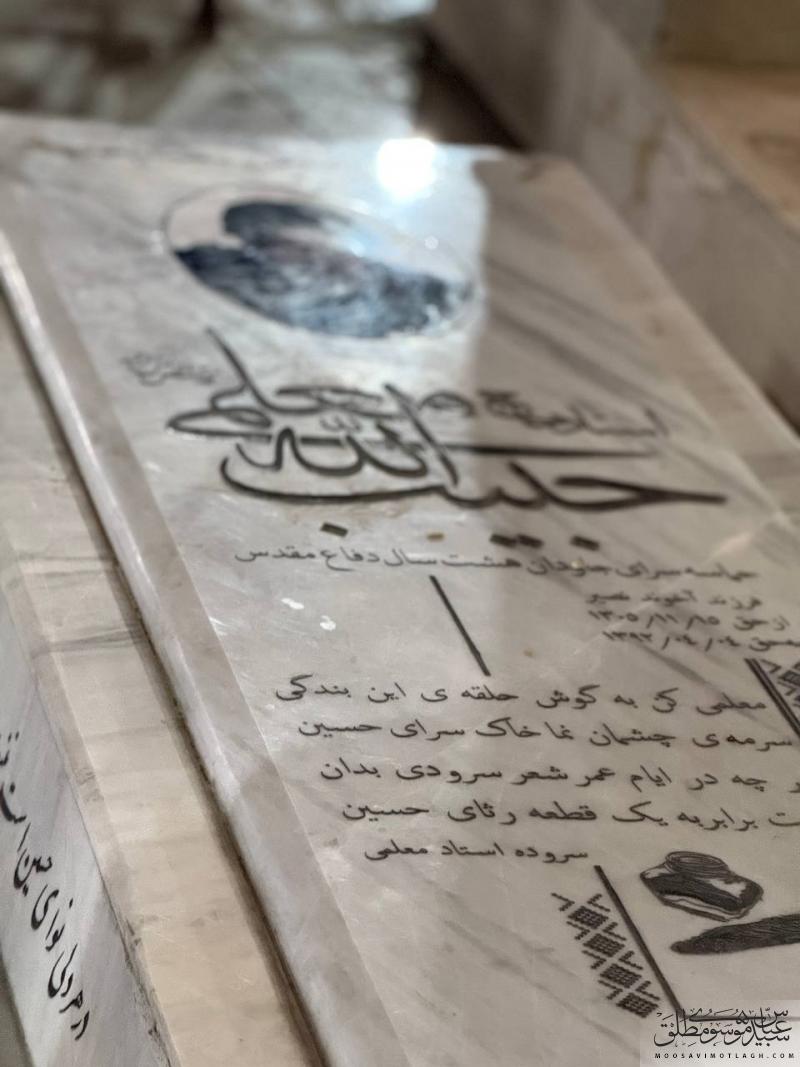 استاد حاج
معلمی
حبیب الله
حماسه سرای جاودان هشت سال دفاع مقدس
فرزند آخوند نصیر
۱۳۰۵/۱۱/۱۵
۱۳۹۲/۰۴/۰۴
معلمی کن به گوش حلقه ی این بندگی
سرمه ی چشمان نما خاک سرای حسین
چه در ایام عمر شعر سرودی بدان
برابر به یک قطعه رثای حسین
سروده استاد معلمی
در هر دلی نوای حسین است
سید عباس موسوی مطلق
MOOSAVIMOTLAGH.COM